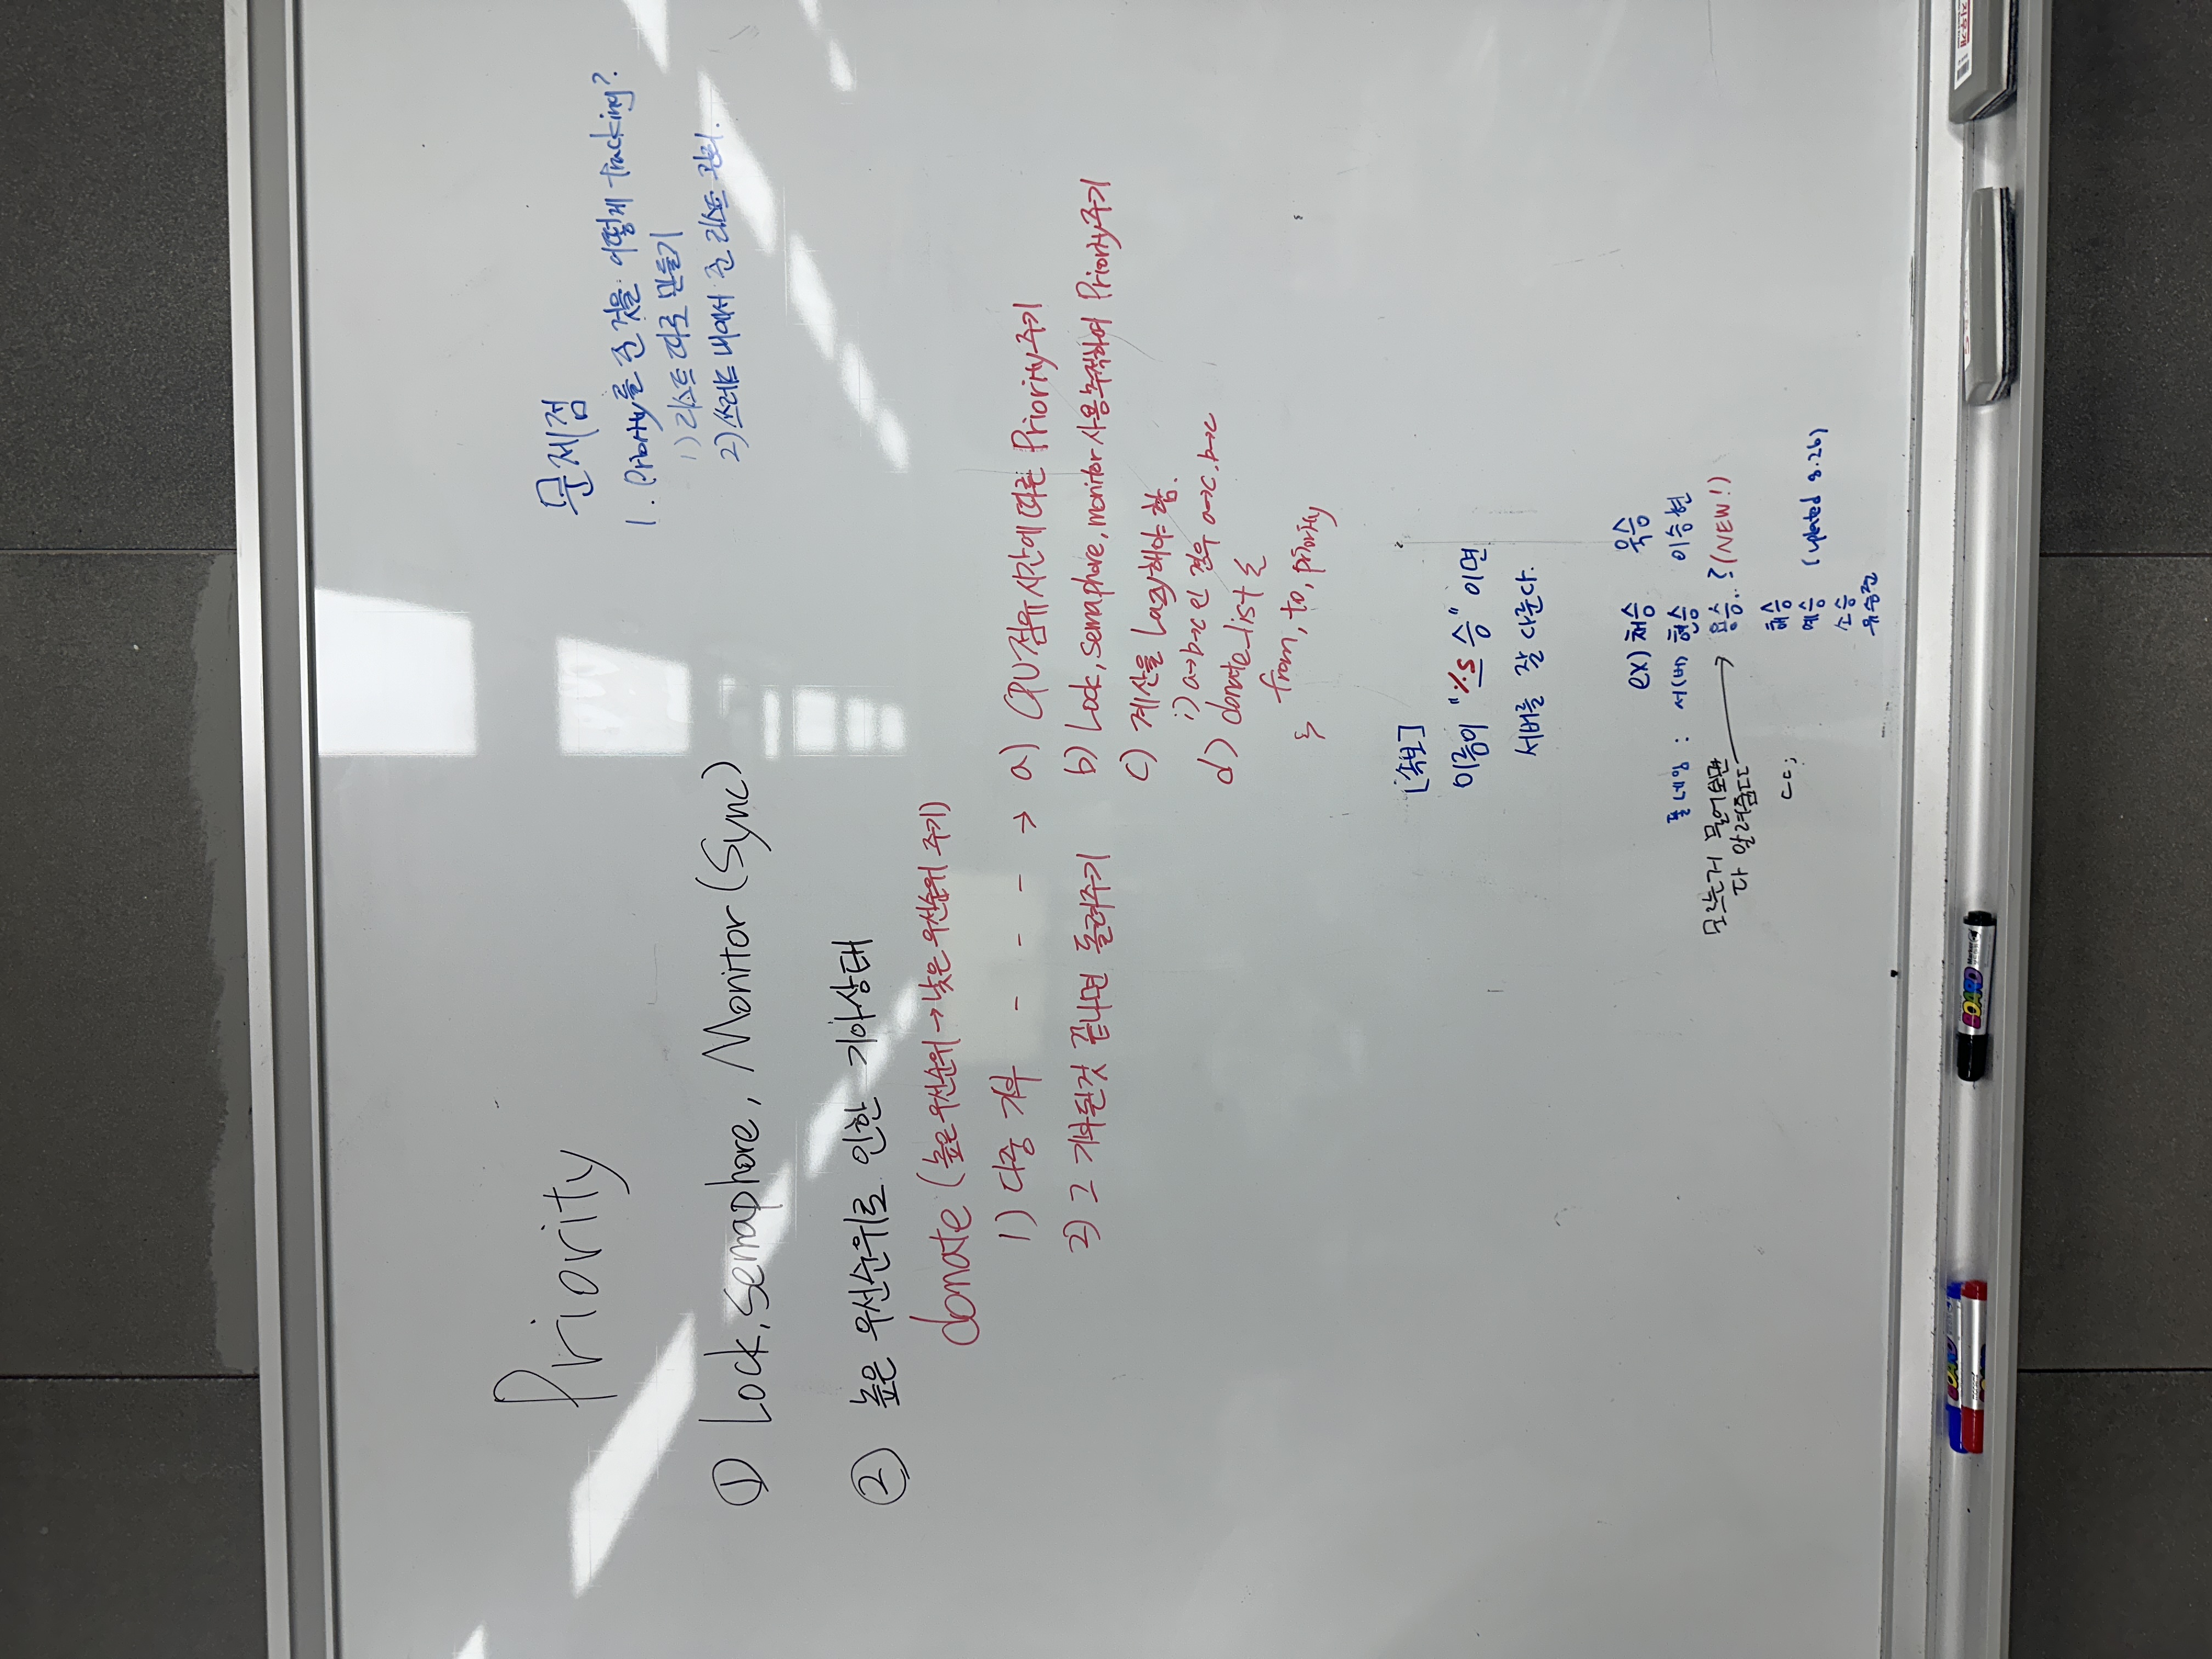 Priority
① Lock, Semaphore, Monitor (Sync)
② 높은 우선순위로 인한 기아상태
donate (높은 우선순위 → 낮은 우선순위 주기)
1) 다중 기부 - - - → a) CPU 점유시간에 따른 Priority주기
2) 그 기부된것 끝나면 돌려주기
b) Lock, Semaphore, monitor 사용 누적하여 Priority주기
c) 계산을 Lazy 해야 함.
i) a→b→c 인 경우 a→c, b→c
d) donate_list 는
from, to, priority
문제점
1. Priority를 준 것을 어떻게 Tracking?
1) 리스트 따로 만들기
2) 쓰레드 내에서 준 리스트 관리.
[속보]
이름이 "%s 승" 이면
서버를 잘 다룬다.
ex) 채승 욱승
풀네임 : 서(배) 현승 이승현
모르는거 물어보면 → 용승..? (NEW!)
다 알려줍니다
ㄷㄷ;
해승
예승 (updated 8.26)
소승
유승전
BOARD
Marker